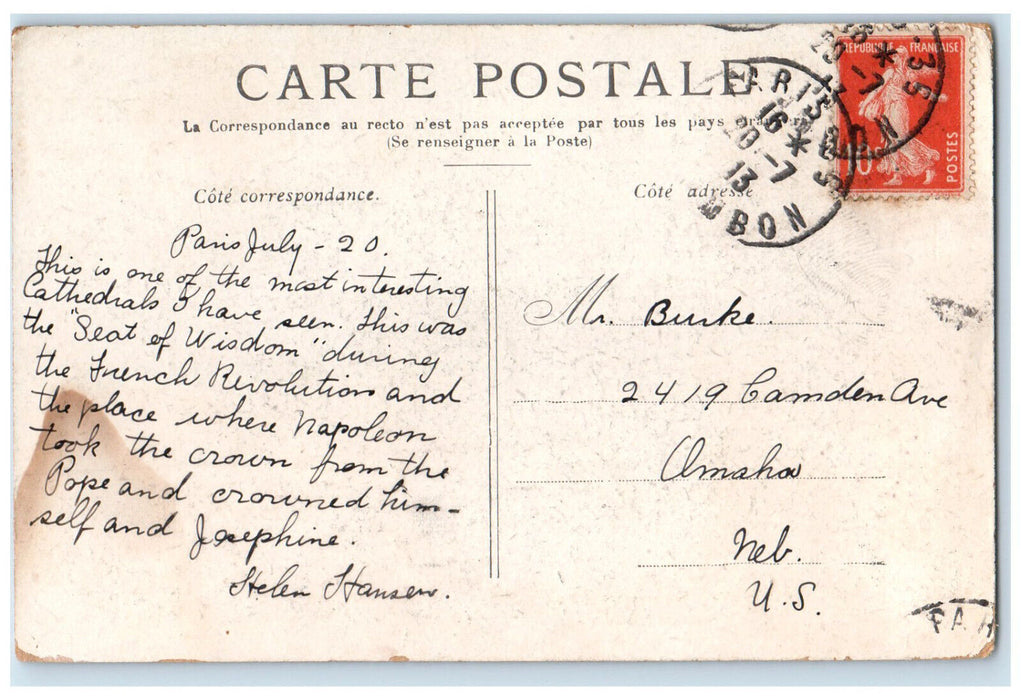 CARTE POSTALE
La Correspondance au recto n'est pas acceptée par tous les pays
(Se renseigner à la Poste)
Côté correspondance.
Côté adresse
REPUBLIQUE FRANÇAISE
POSTES
10
PARIS
16 * 35
20 -7
13
BON
Paris July - 20.
This is one of the most interesting
Cathedrals I have seen. This was
the "Seat of Wisdom" during
the French Revolution and
the place where Napoleon
took the crown from the
Pope and crowned him-
self and Josephine.
Helen Hansen.
Mr. Burke.
2419 Camden Ave
Omaha
Neb.
U.S.
PAR